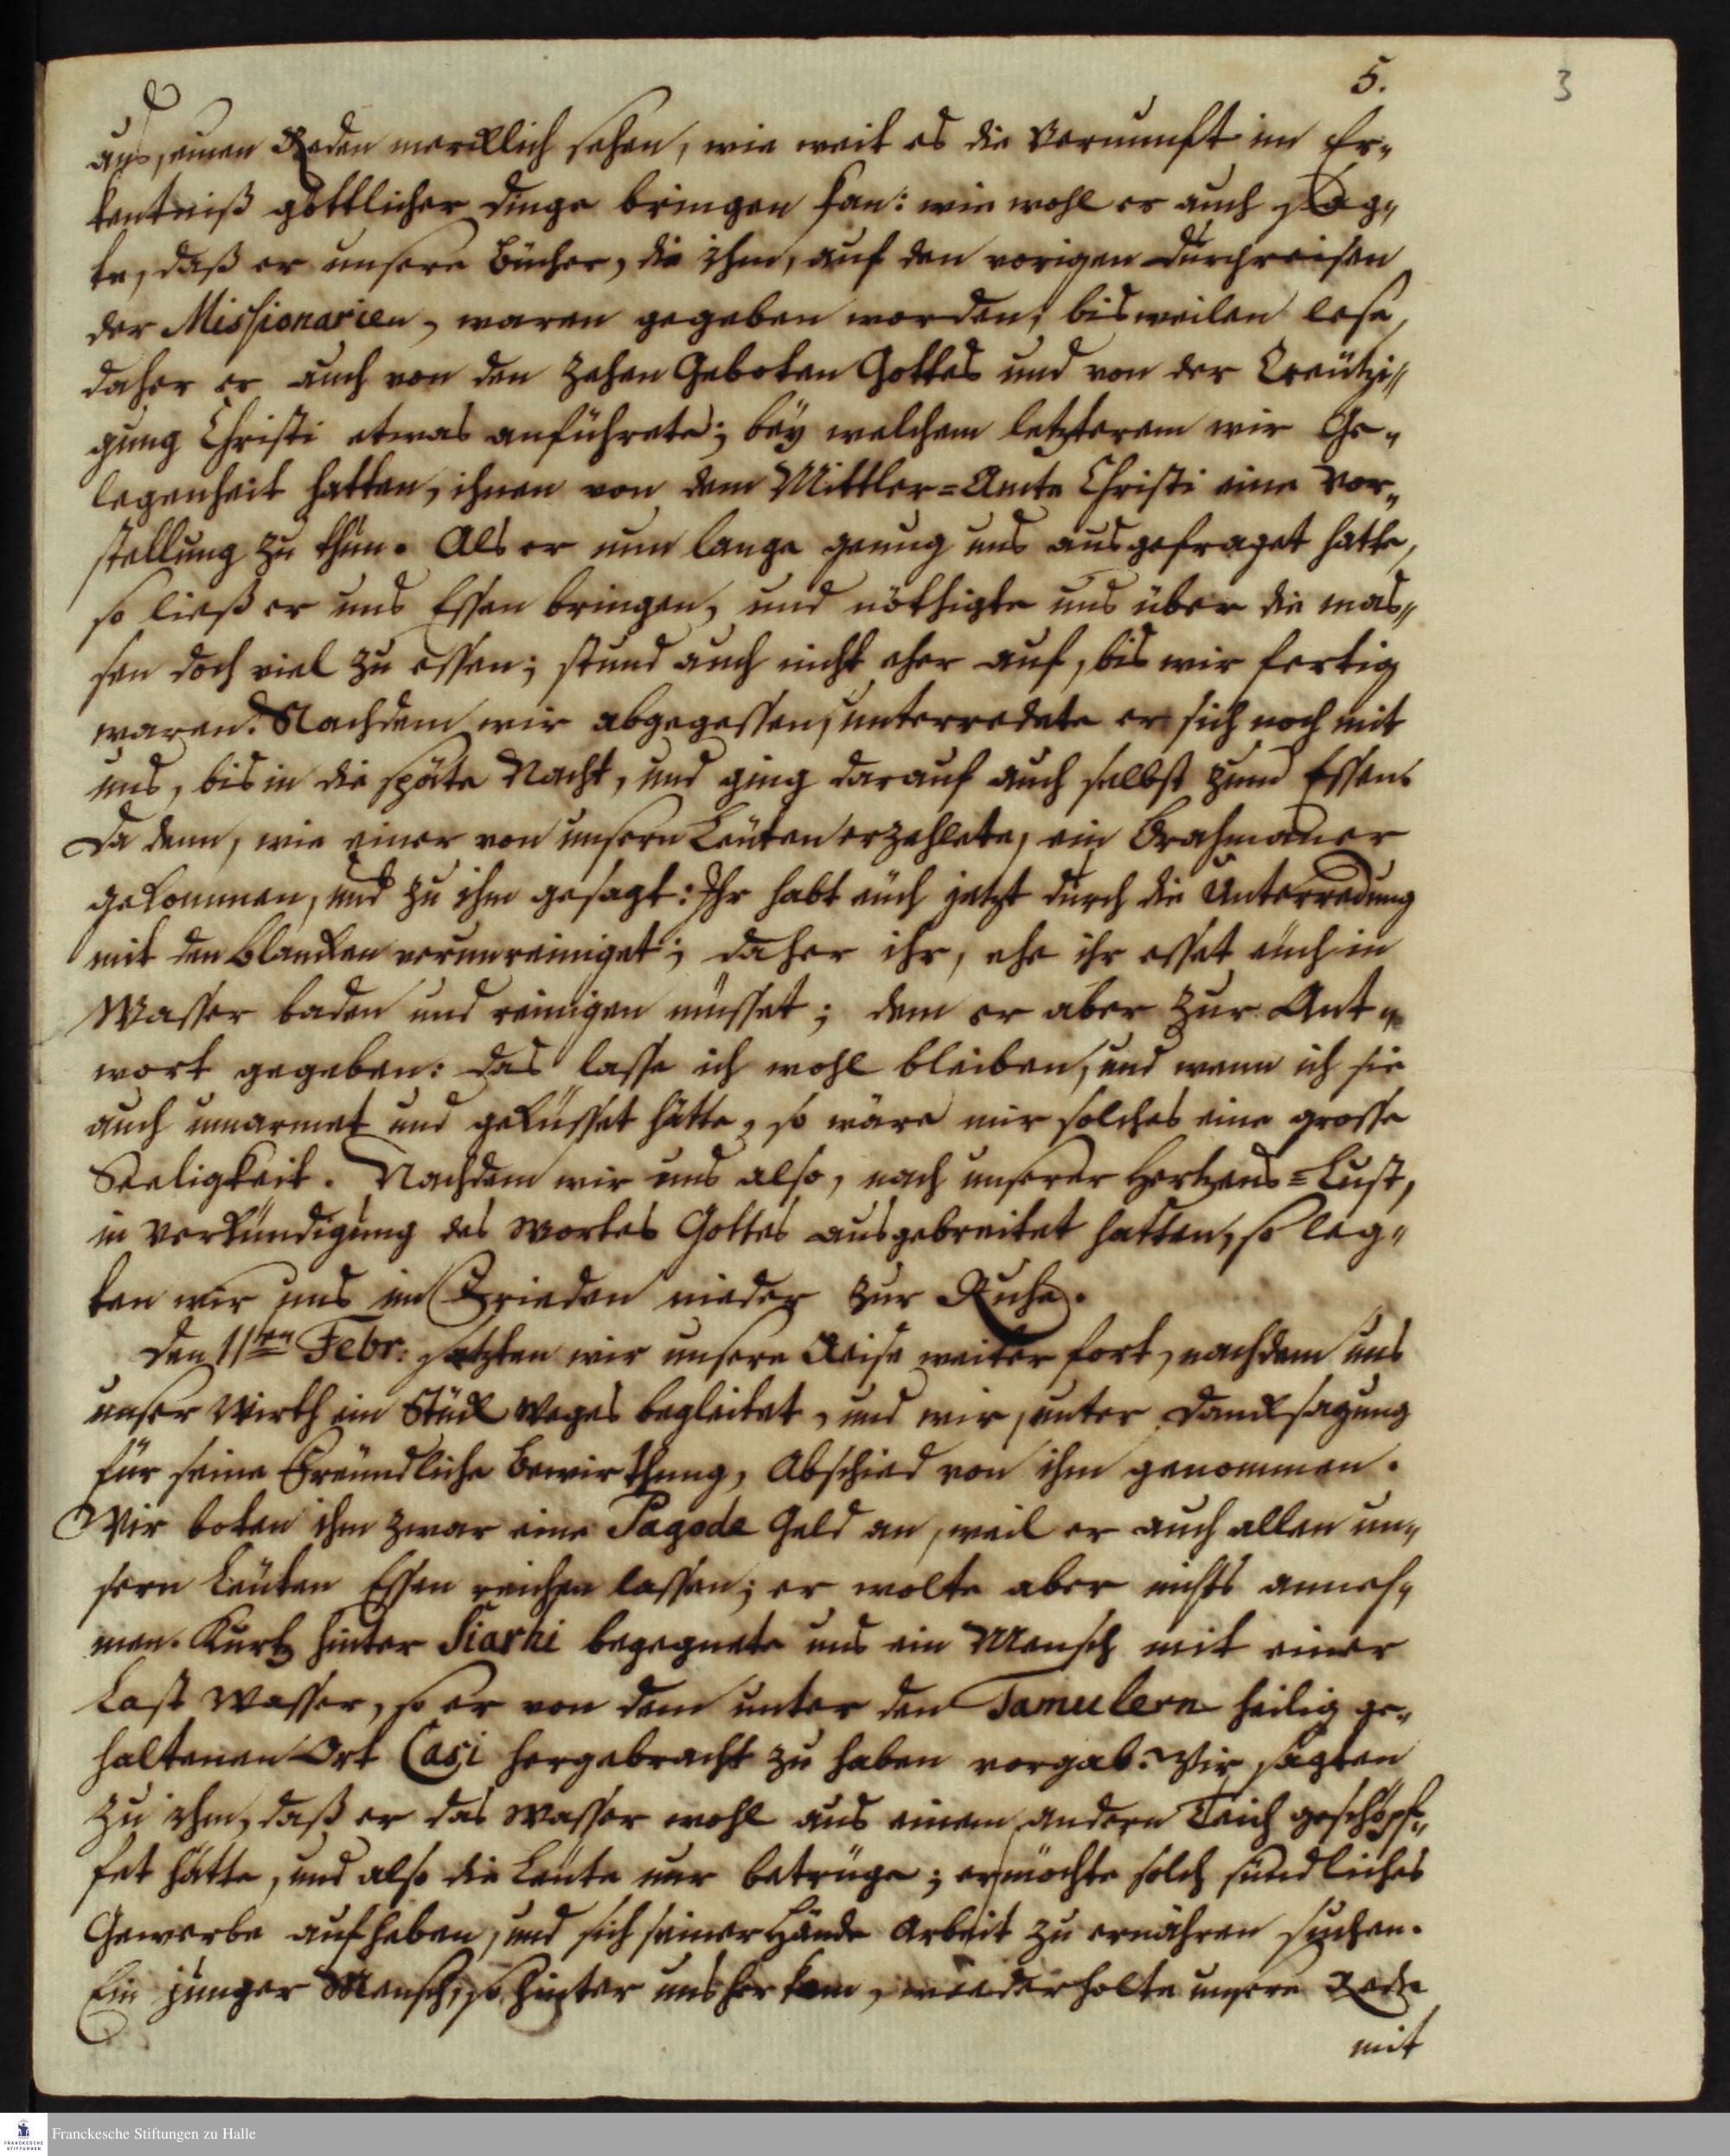 5.
3
aus seinen Reden mercklich sehen, wie weit es die Vernunft im Er„
kentniß göttlicher dinge bringen kan: wie wohl er auch sag„
te, daß er unsere Bücher, die ihm, auf den vorigen durchreisen
der Missionarien, waren gegeben worden, bisweilen lese,
daher er auch von den Zehen Geboten Gottes und von der Creützi„
gung Christi etwas anführete; beÿ welchem letzterem wir Ge„
legenheit hatten, ihnen von dem Mittler=Amte Christi eine Vor„
stellung zu thun. Als er nun lange genug uns ausgefraget hatte,
so ließ er uns Essen bringen, und nöthigte uns über die mas„
sen doch viel zu essen; stund auch nicht eher auf, bis wir fertig
waren. Nachdem wir abgegessen, unterredete er sich noch mit
uns, bis in die späte Nacht, und ging darauf auch selbst zum Essen.
Da denn, wie einer von unsern Leüten erzehlete, ein Brahmaner
gekommen, und zu ihm gesagt: Ihr habt eüch jetzt durch die Unterredung
mit den Blancken verunreiniget; daher ihr, ehe ihr esset eüch in
Wasser baden und reinigen müsset; dem er aber zur Ant„
wort gegeben: das lasse ich wohl bleiben, und wenn ich sie
auch umarmet und geküsset hätte, so wäre mir solches eine grosse
Seeligkeit. Nachdem wir uns also, nach unserer Hertzens=Lust,
in Verkündigung des Wortes Gottes ausgebreitet hatten, so leg„
ten wir uns im Frieden nieder zur Ruhe.
Den 11ten Febr: setzten wir unsere Reise weiter fort, nachdem uns
unser Wirth ein Stück Weges begleitet, und wir, unter Dancksagung
für seine Freündliche Bewirthung, Abschied von ihm genommen.
Wir boten ihm zwar eine Pagode Geld an, weil er auch allen un„
sern Leüten Essen reichen lassen; er wolte aber nichts anneh„
men. Kurtz hinter Siarhi begegnete uns ein Mensch mit einer
Last Wasser, so er von dem unter den Tamulern heilig ge„
haltenen Ort Casi hergebracht zu haben vorgab. Wir sagten
zu ihm, daß er das Wasser wohl aus einem andern Teich geschöpf„
fet hätte, und also die Leüte nur betrüge; er möchte solch sündliches
Gewerbe aufheben, und sich seiner Hände Arbeit zu ernähren suchen.
Ein junger Mensch, so hinter uns her kam, wiederholte unsere Rede
mit
Franckesche Stiftungen zu Halle